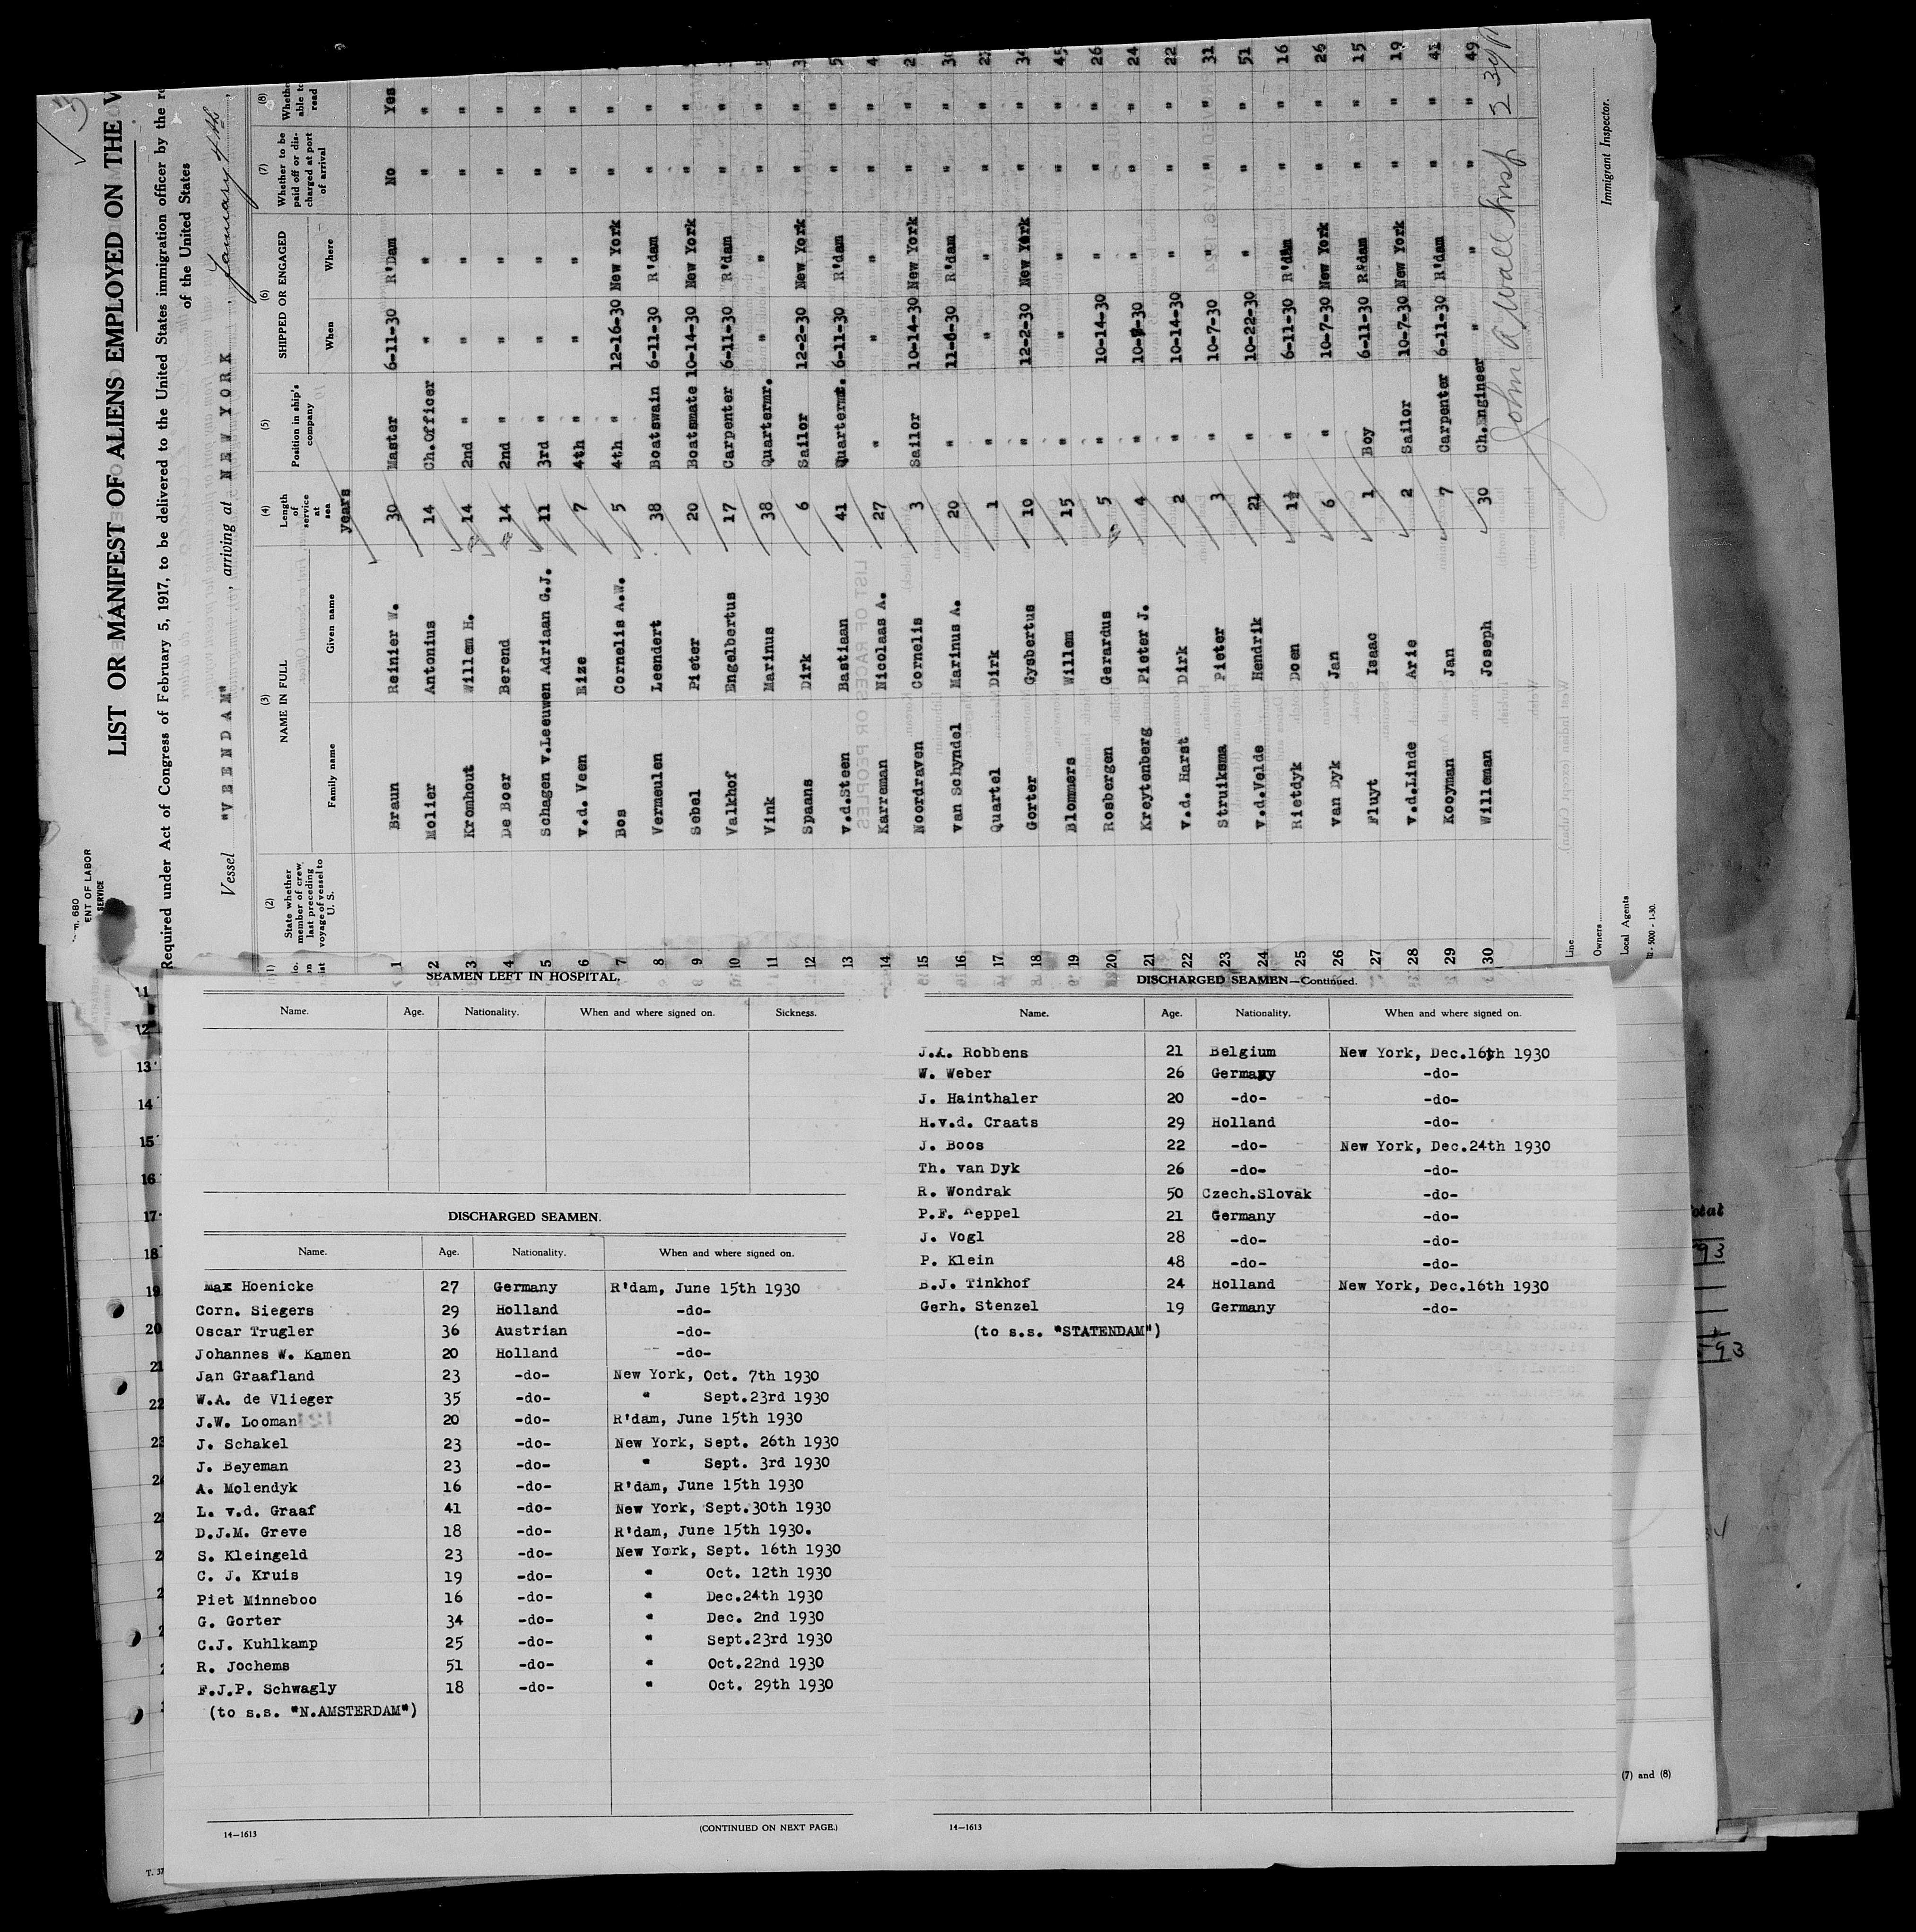 n. 680
ENT OF LABOR
SERVICE
LIST OR MANIFEST OF ALIENS EMPLOYED ON THE V
Required under Act of Congress of February 5, 1917, to be delivered to the United States immigration officer by the re
of the United States
Vessel "VEENDAM", arriving at NEW YORK, January 4th,
(1) (2) (3) (4) (5) (6) (7) (8)
State whether member of crew last preceding voyage of vessel to U. S.
NAME IN FULL
Family name Given name
Length of service at sea
years
Position in ship's company
SHIPPED OR ENGAGED
When Where
Whether to be paid off or discharged at port of arrival
Whethe able to read
1 Braun Reinier W. 30 Master 6-11-30 R'Dam No Yes
2 Molier Antonius 14 Ch.Officer " " " "
3 Kromhout Willem H. 14 2nd " " " " "
4 De Boer Berend 14 2nd " " " " "
5 Schagen v.Leeuwen Adriaan G.J. 11 3rd " " " " "
6 v.d. Veen Eize 7 4th " " " " "
7 Bos Cornelis A.W. 5 4th " 12-16-30 New York " "
8 Vermeulen Leendert 38 Boatswain 6-11-30 R'dam " "
9 Sebel Pieter 20 Boatsmate 10-14-30 New York " "
10 Valkhof Engelbertus 17 Carpenter 6-11-30 R'dam " "
11 Vink Marinus 38 Quartermr. " " " "
12 Spaans Dirk 6 Sailor 12-2-30 New York " "
13 v.d.Steen Bastiaan 41 Quartermt. 6-11-30 R'dam " "
14 Karreman Nicolaas A. 27 " " " " "
15 Noordraven Cornelis 3 Sailor 10-14-30 New York " "
16 van Schyndel Marinus A. 20 " 11-6-30 R'dam " "
17 Quartel Dirk 1 " " " " "
18 Gorter Gysbertus 10 " 12-2-30 New York " "
19 Blommers Willem 15 " " " " " 45
20 Rosbergen Gerardus 5 " 10-14-30 " " " 26
21 Kreytenberg Pieter J. 4 " " " " 24
22 v.d. Harst Dirk 2 " 10-14-30 " " " 22
23 Struiksma Pieter 3 " 10-7-30 " " " 31
24 v.d.Velde Hendrik 21 " 10-22-30 " " " 51
25 Rietdyk Doen 1½ " 6-11-30 R'dam " " 16
26 van Dyk Jan 6 " 10-7-30 New York " " 26
27 Fluyt Isaac 1 Boy 6-11-30 R'dam " " 15
28 v.d.Linde Arie 2 Sailor 10-7-30 New York " " 19
29 Kooyman Jan 7 Carpenter 6-11-30 R'dam " " 41
30 Willeman Joseph 30 Ch.Engineer " " " " 49
Line
Owners
Local Agents
Immigrant Inspector.
SEAMEN LEFT IN HOSPITAL.
Name. Age. Nationality. When and where signed on. Sickness.
DISCHARGED SEAMEN.
Name. Age. Nationality. When and where signed on.
Max Hoenicke 27 Germany R'dam, June 15th 1930
Corn. Siegers 29 Holland -do-
Oscar Trugler 36 Austrian -do-
Johannes W. Kamen 20 Holland -do-
Jan Graafland 23 -do- New York, Oct. 7th 1930
W.A. de Vlieger 35 -do- " Sept.23rd 1930
J.W. Looman 20 -do- R'dam, June 15th 1930
J. Schakel 23 -do- New York, Sept. 26th 1930
J. Beyeman 23 -do- " Sept. 3rd 1930
A. Molendyk 16 -do- R'dam, June 15th 1930
L. v.d. Graaf 41 -do- New York, Sept.30th 1930
D.J.M. Greve 18 -do- R'dam, June 15th 1930.
S. Kleingeld 23 -do- New York, Sept. 16th 1930
C. J. Kruis 19 -do- " Oct. 12th 1930
Piet Minneboo 16 -do- " Dec.24th 1930
G. Gorter 34 -do- " Dec. 2nd 1930
C.J. Kuhlkamp 25 -do- " Sept.23rd 1930
R. Jochems 51 -do- " Oct.22nd 1930
F.J.P. Schwagly 18 -do- " Oct. 29th 1930
(to s.s. "N.AMSTERDAM")
14—1613
(CONTINUED ON NEXT PAGE.)
DISCHARGED SEAMEN—Continued.
Name. Age. Nationality. When and where signed on.
J.A. Robbens 21 Belgium New York, Dec.16th 1930
W. Weber 26 Germany -do-
J. Hainthaler 20 -do- -do-
H.v.d. Craats 29 Holland -do-
J. Boos 22 -do- New York, Dec.24th 1930
Th. van Dyk 26 -do- -do-
R. Wondrak 50 Czech.Slovak -do-
P.F. eppel 21 Germany -do-
J. Vogl 28 -do- -do-
P. Klein 48 -do- -do-
B.J. Tinkhof 24 Holland New York, Dec.16th 1930
Gerh. Stenzel 19 Germany -do-
(to s.s. "STATENDAM")
14—1613
(7) and (8)